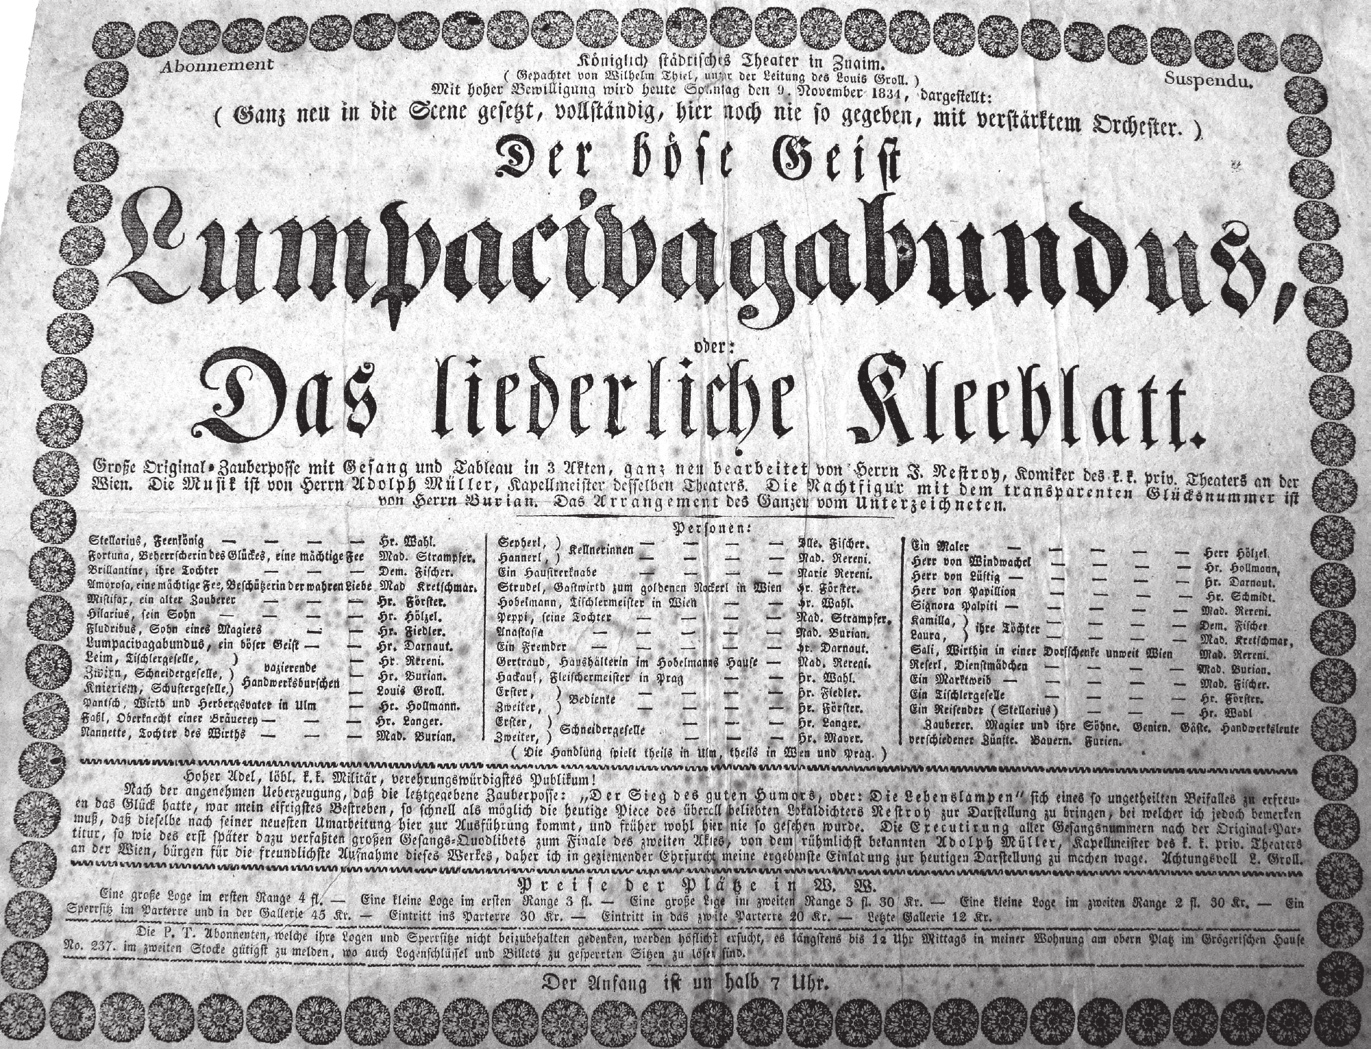 Abonnement
Suspendu.
Königlich städtisches Theater in Znaim.
( Gepachtet von Wilhelm Thiel, unter der Leitung des Louis Groll. )
Mit hoher Bewilligung wird heute Sonntag den 9. November 1834, dargestellt:
( Ganz neu in die Scene gesetzt, vollständig, hier noch nie so gegeben, mit verstärktem Orchester. )
Der böse Geist
Lumpacivagabundus,
oder:
Das liederliche Kleeblatt.
Große Original-Zauberposse mit Gesang und Tableau in 3 Akten, ganz neu bearbeitet von Herrn J. Nestroy, Komiker des k. k. priv. Theaters an der
Wien. Die Musik ist von Herrn Adolph Müller, Kapellmeister desselben Theaters. Die Nachtfigur mit dem transparenten Glücksnummer ist
von Herrn Burian. Das Arrangement des Ganzen vom Unterzeichneten.
Personen:
Stellarius, Feenkönig — — — Hr. Wahl.
Fortuna, Beherrscherin des Glückes, eine mächtige Fee Mad. Strampfer.
Brillantine, ihre Tochter — — — Dem. Fischer.
Amorosa, eine mächtige Fee, Beschützerin der wahren Liebe Mad Kretschmar.
Mistifax, ein alter Zauberer — — — Hr. Förster.
Hilarius, sein Sohn — — — — Hr. Hölzel.
Fludribus, Sohn eines Magiers — — Hr. Fiedler.
Lumpacivagabundus, ein böser Geist — — Hr. Darnaut.
Leim, Tischlergeselle, ) Hr. Rereni.
Zwirn, Schneidergeselle, ) vazierende Handwerksburschen — Hr. Burian.
Knieriem, Schustergeselle, ) Louis Groll.
Pantsch, Wirth und Herbergsvater in Ulm — Hr. Hollmann.
Faßl, Oberknecht einer Bräuerey — — — Hr. Langer.
Nannette, Tochter des Wirths — — — Mad. Burian.
Sepherl, ) Kellnerinnen — — — Dlle. Fischer.
Hannerl, ) — — — Mad. Rereni.
Ein Hausirerknabe — — — — Marie Rereni.
Strudel, Gastwirth zum goldenen Nockerl in Wien Hr. Förster.
Hobelmann, Tischlermeister in Wien — — Hr. Wahl.
Peppi, seine Tochter — — — — Mad. Strampfer.
Anastasia — — — — Mad. Burian.
Ein Fremder — — — — Hr. Darnaut.
Gertraud, Haushälterin im Hobelmanns Hause — Mad. Rereni.
Hackauf, Fleischermeister in Prag — — Hr. Wahl.
Erster, } Bediente — — — Hr. Fiedler.
Zweiter, } — — — Hr. Förster.
Erster, } Schneidergeselle — — — Hr. Langer.
Zweiter, } — — — Hr. Mayer.
( Die Handlung spielt theils in Ulm, theils in Wien und Prag. )
Ein Maler — — — — Herr Hölzel.
Herr von Windwachel — — — Hr. Hollmann,
Herr von Lüftig — — — — Hr. Darnaut.
Herr von Papillion — — — Hr. Schmidt.
Signora Palpiti — — — — Mad. Rereni.
Kamilla, } ihre Töchter — — — Dem. Fischer
Laura, } — — — Mad. Kretschmar,
Sali, Wirthin in einer Dorfschenke unweit Wien Mad. Rereni.
Reserl, Dienstmädchen — — — Mad. Burian.
Ein Marktweib — — — — Mad. Fischer.
Ein Tischlergeselle — — — Hr. Förster.
Ein Reisender (Stellarius) — — — Hr. Wahl
Zauberer. Magier und ihre Söhne. Genien. Gäste. Handwerksleute
verschiedener Zünfte. Bauern. Furien.
Hoher Adel, löbl. k. k. Militär, verehrungswürdigstes Publikum!
Nach der angenehmen Ueberzeugung, daß die letztgegebene Zauberposse: „Der Sieg des guten Humors, oder: Die Lebenslampen“ sich eines so ungetheilten Beifalles zu erfreu-
en das Glück hatte, war mein eifrigstes Bestreben, so schnell als möglich die heutige Piece des überall beliebten Lokaldichters Nestroy zur Darstellung zu bringen, bei welcher ich jedoch bemerken
muß, daß dieselbe nach seiner neuesten Umarbeitung hier zur Ausführung kommt, und früher wohl hier nie so gesehen wurde. Die Executirung aller Gesangsnummern nach der Original-Par-
titur, so wie des erst später dazu verfaßten großen Gesangs-Quodlibets zum Finale des zweiten Aktes, von dem rühmlichst bekannten Adolph Müller, Kapellmeister des k. k. priv. Theaters
an der Wien, bürgen für die freundlichste Aufnahme dieses Werkes, daher ich in geziemender Ehrfurcht meine ergebenste Einladung zur heutigen Darstellung zu machen wage. Achtungsvoll L. Groll.
Preise der Plätze in W. W.
Eine große Loge im ersten Range 4 fl. — Eine kleine Loge im ersten Range 3 fl. — Eine große Loge im zweiten Range 3 fl. 30 Kr. — Eine kleine Loge im zweiten Range 2 fl. 30 Kr. — Ein
Sperrsitz im Parterre und in der Gallerie 45 Kr. — Eintritt ins Parterre 30 Kr. — Eintritt in das zweite Parterre 20 Kr. — Letzte Gallerie 12 Kr.
Die P. T. Abonnenten, welche ihre Logen und Sperrsitze nicht beizubehalten gedenken, werden höflichst ersucht, es längstens bis 12 Uhr Mittags in meiner Wohnung am obern Platz im Grögerischen Hause
No. 237. im zweiten Stocke gütigst zu melden, wo auch Logenschlüssel und Billets zu gesperrten Sitzen zu lösen sind.
Der Anfang ist um halb 7 Uhr.